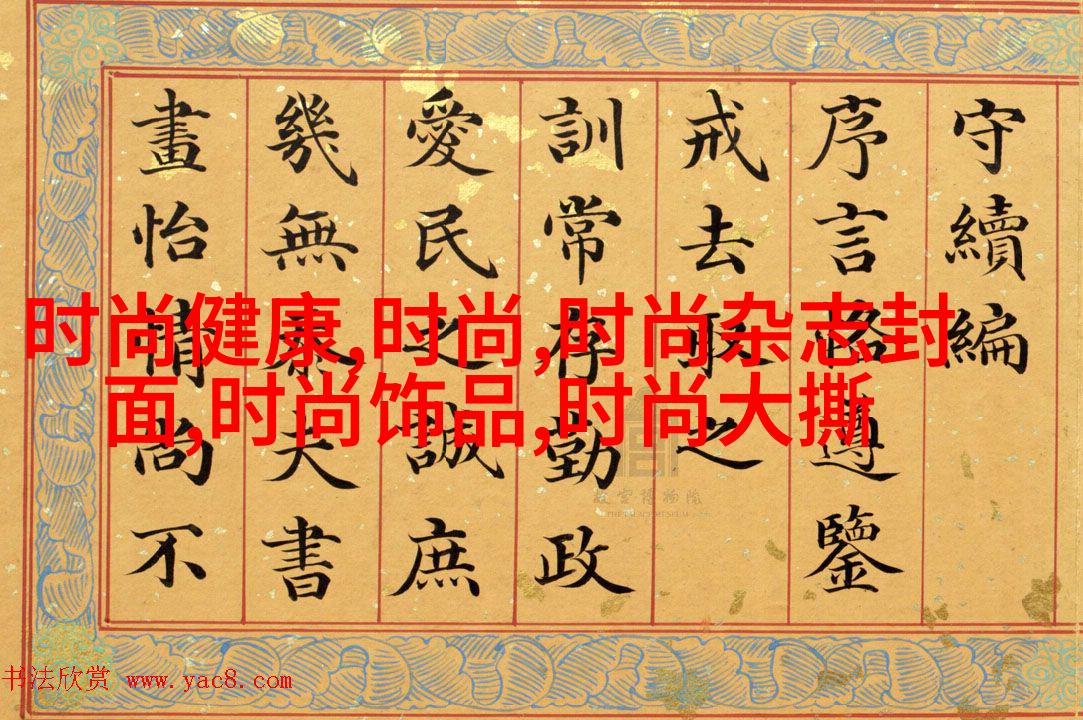 守續編
序言恪遵鑒
戒去取之
訓常存勤政
愛民之誠庶
幾無忝夫書
畫怡情尚不
时尚健康,时尚,时尚杂志封
面,时尚饰品,时尚大撕
故宫博物院
THE PALACE MUSEUM
书法欣赏 www.yac8.com